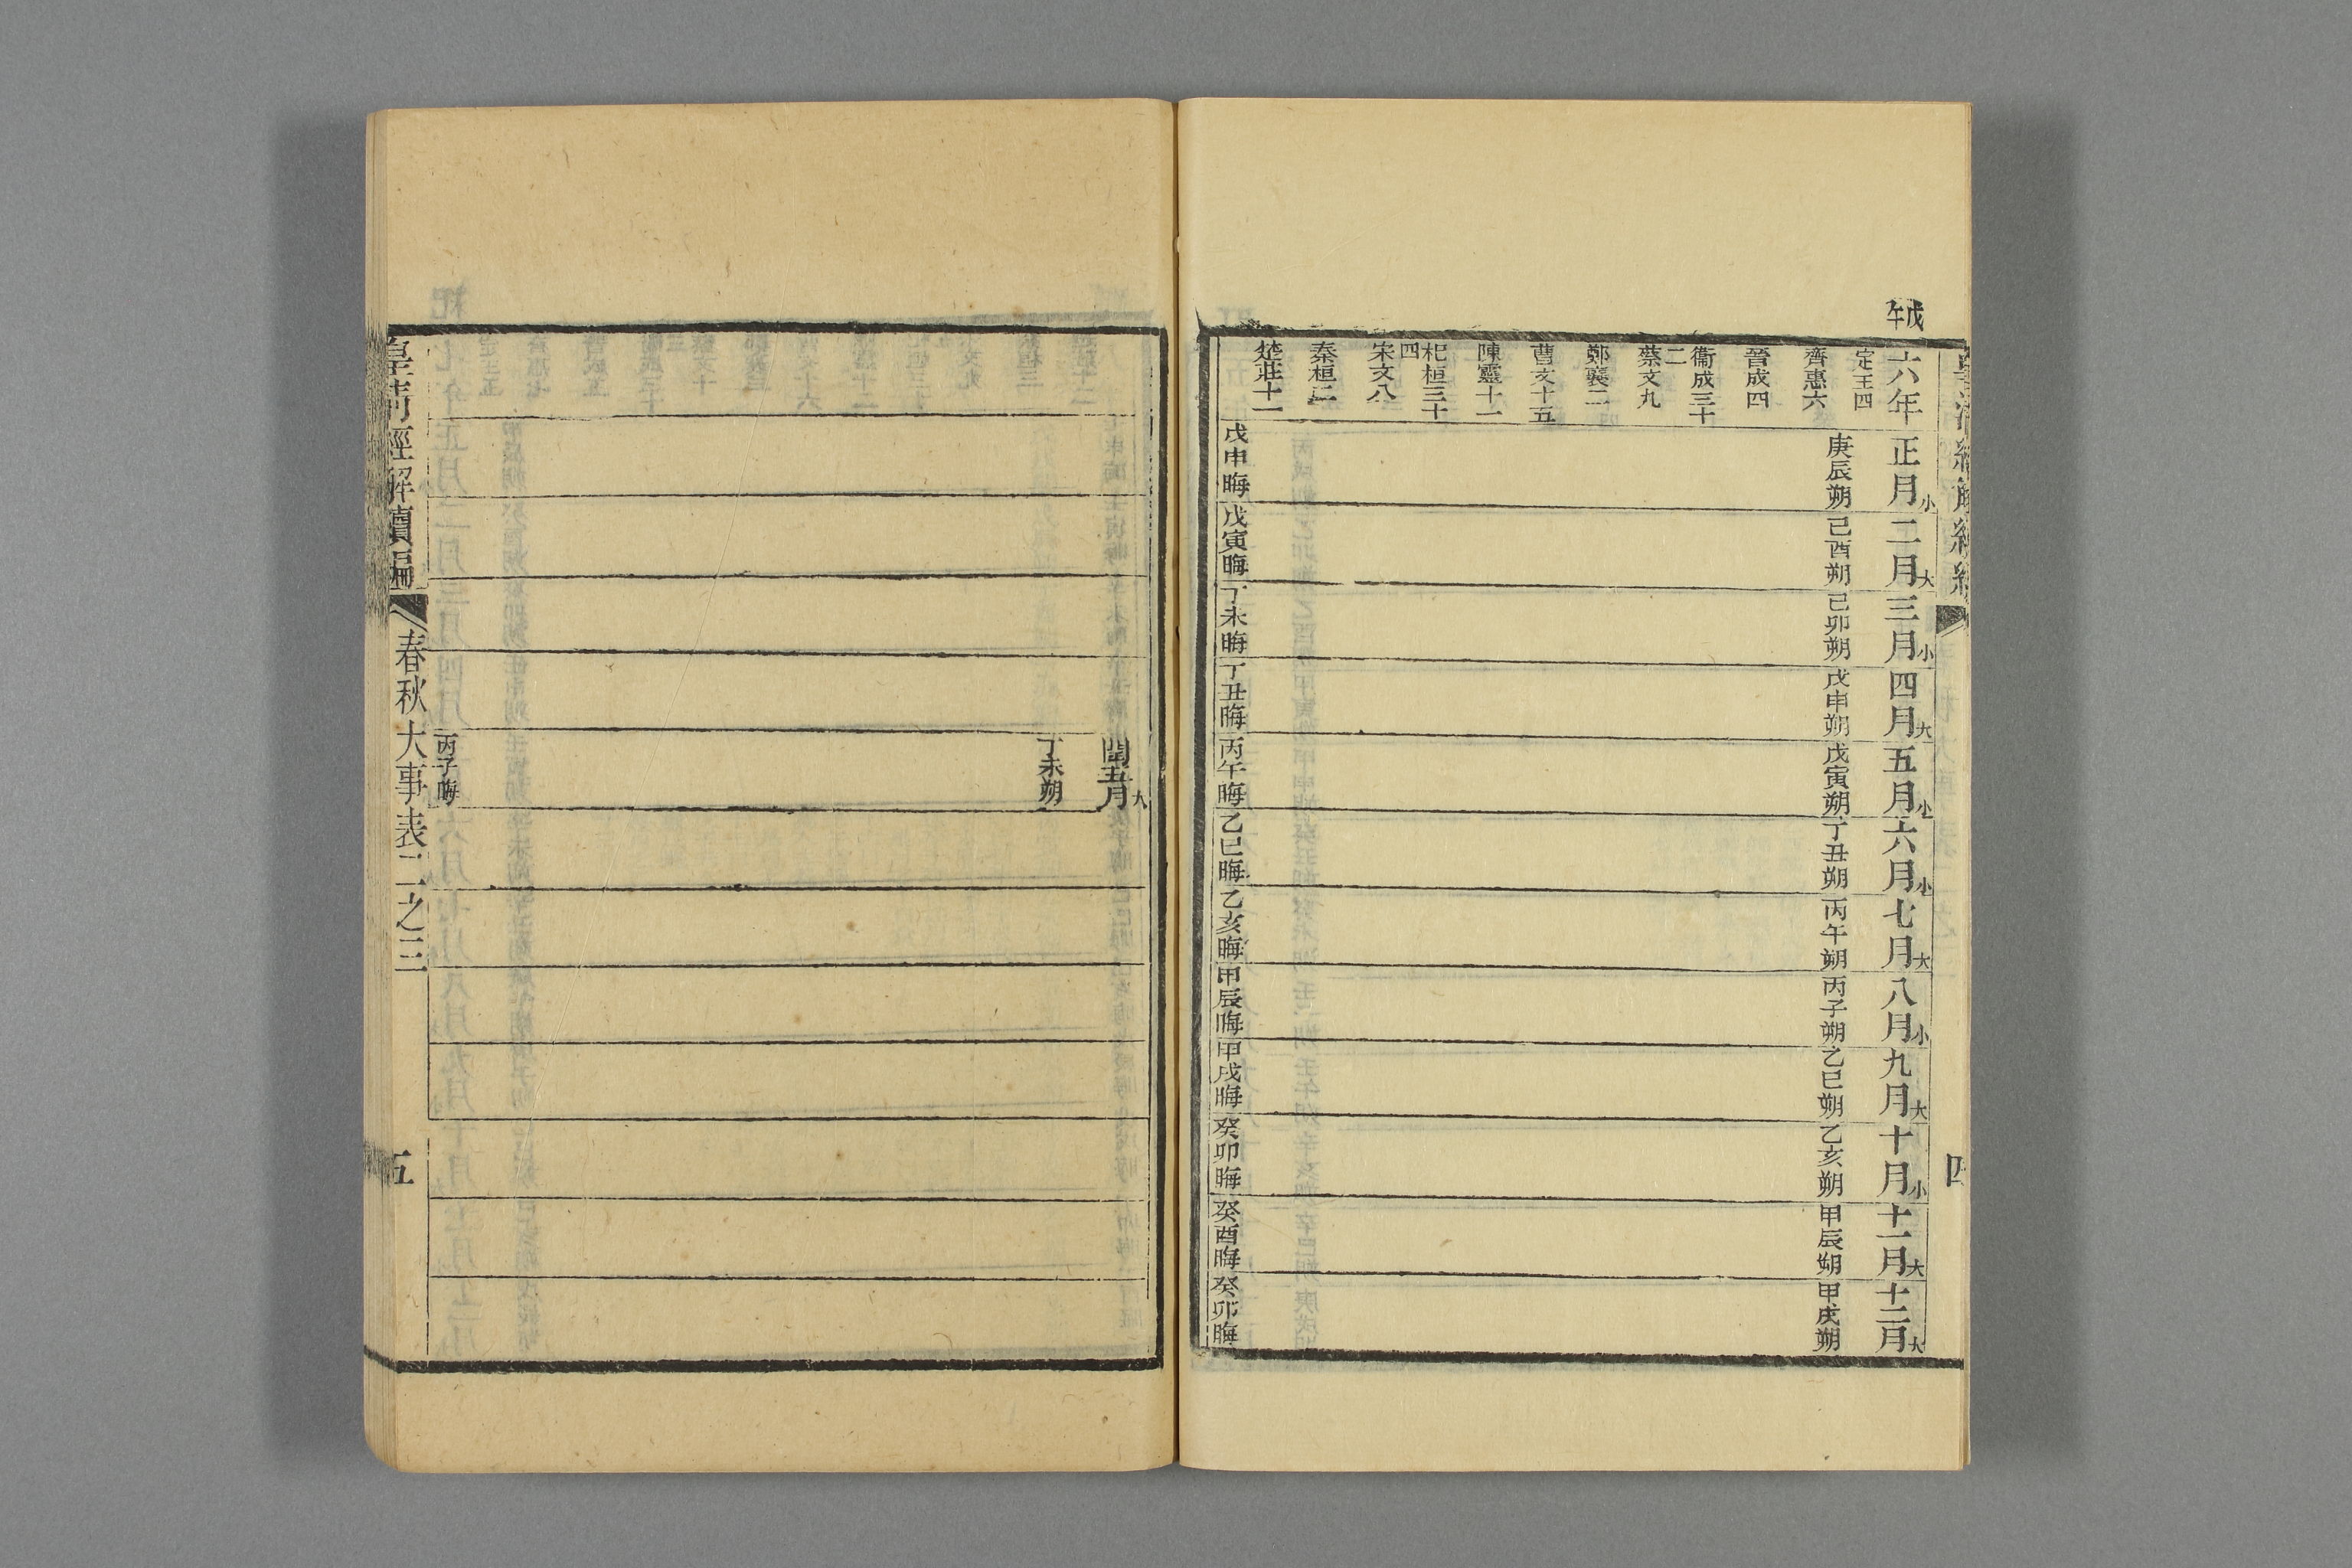 皇清經解續編
四
戊午
六年
定王四
齊惠六
晉成四
衞成三十二
蔡文九
鄭襄二
曹文十五
陳靈十一
杞桓三十四
宋文八
秦桓二
楚莊十一
正月小
庚辰朔
戊申晦
二月大
己酉朔
戊寅晦
三月小
己卯朔
丁未晦
四月大
戊申朔
丁丑晦
五月小
戊寅朔
丙午晦
六月小
丁丑朔
乙巳晦
七月大
丙午朔
乙亥晦
八月小
丙子朔
甲辰晦
九月大
乙巳朔
甲戌晦
十月小
乙亥朔
癸卯晦
十一月大
甲辰朔
癸酉晦
十二月大
甲戌朔
癸卯晦
閏五月大
丁未朔
丙子晦
皇清經解續編
春秋大事表二之三
五